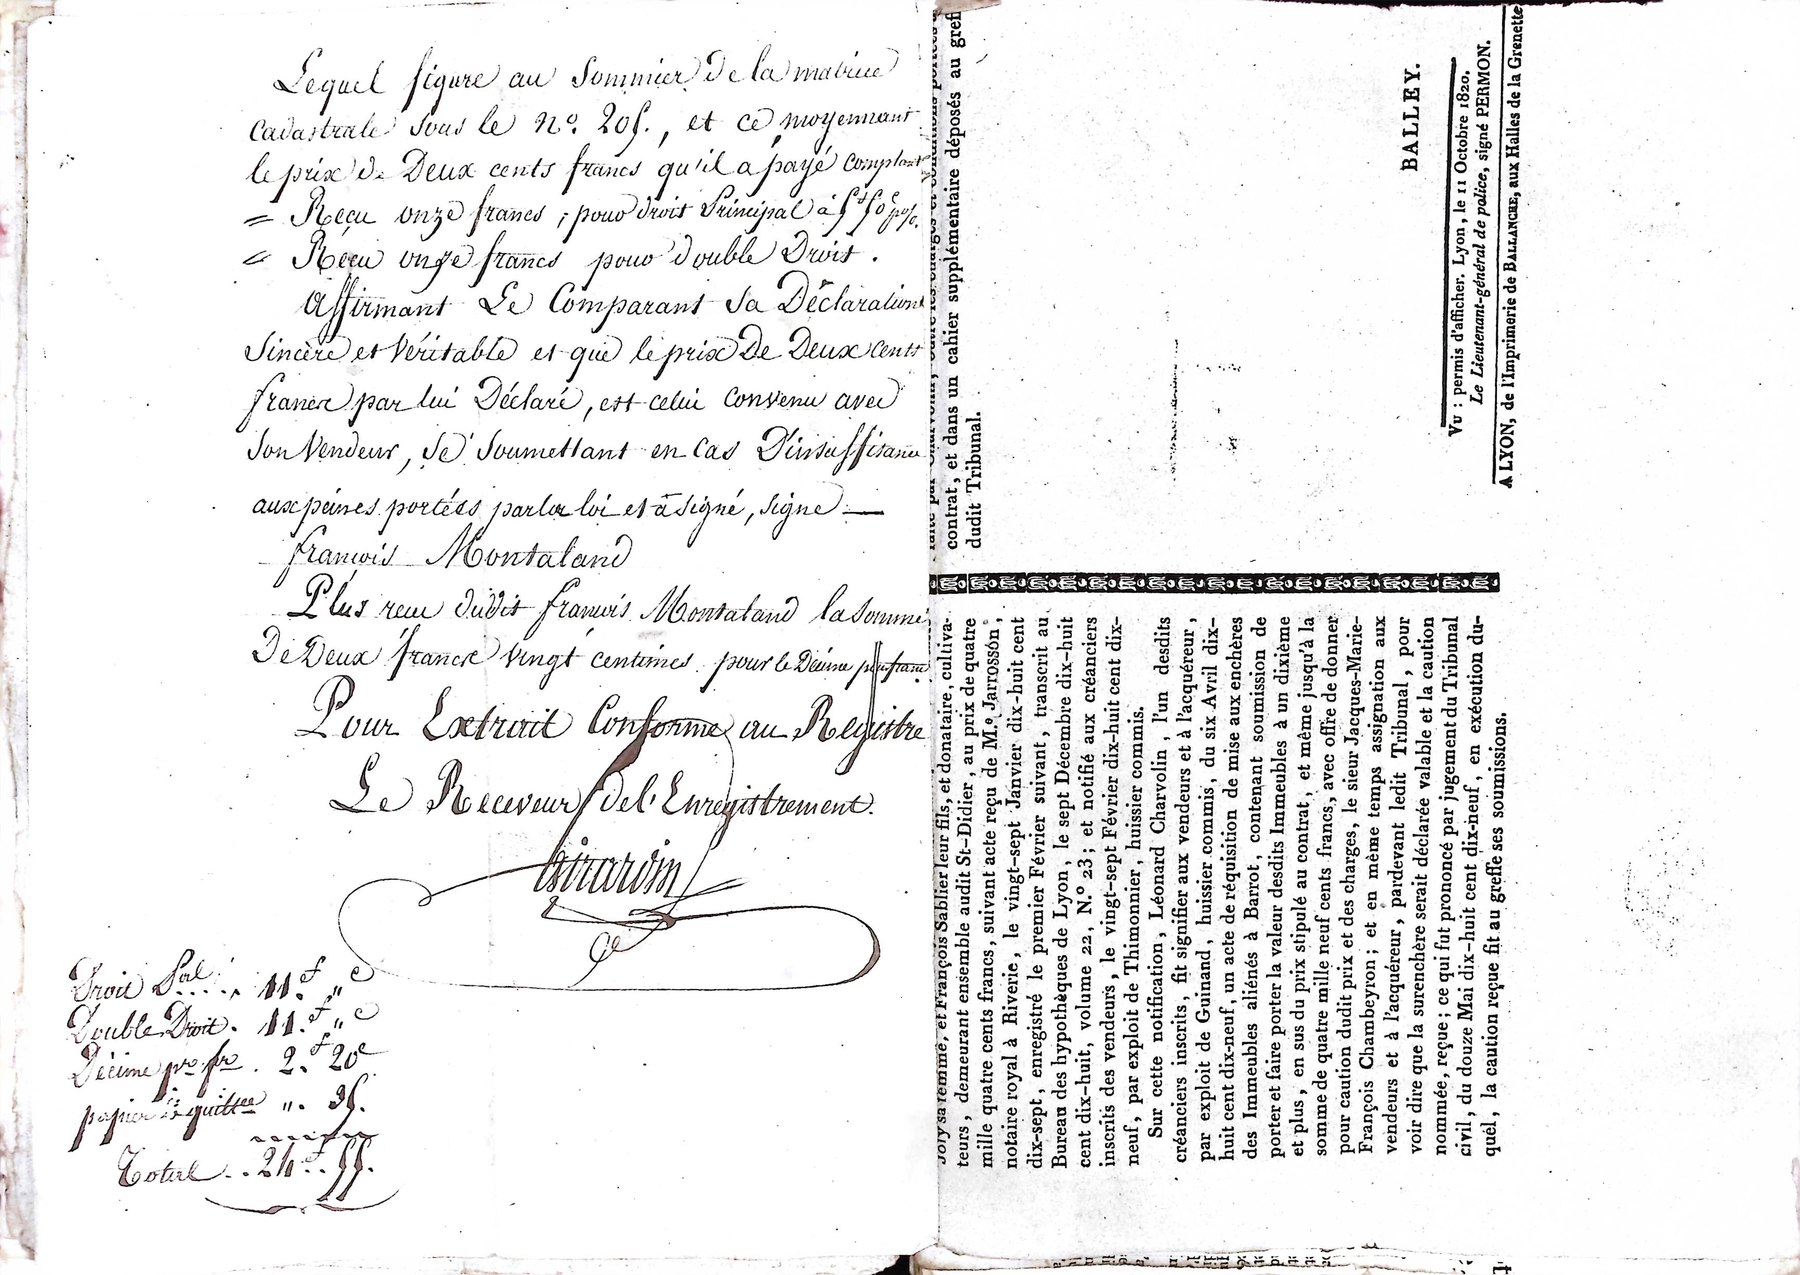 Lequel figure au Sommier de la matrice
Cadastrale sous le No. 205., et ce moyennant
le prix de Deux cents francs qu'il a payé comptant
= Reçu onze francs, pour droit Principal à 5f 50c p%.
= Reçu onze francs pour double Droit.
Affirmant Le Comparant sa Déclaration
Sincère et Véritable et que le prix De Deux cents
francs par lui Déclaré, est celui convenu avec
son Vendeur, se soumettant en cas D'insuffisance
aux peines portées par la loi et a signé, signé —
françois Montaland
Plus reçu dudit françois Montaland la somme
De Deux francs vingt centimes pour le Décime par franc
Pour Extrait Conforme au Registre
Le Receveur de l'Enregistrement.
Girardin
Droit Pal..... 11.f „c
Double Droit. 11.f „c
Décime pr fr. 2.f 20c
papier et quittce „. 35.
Total.. 24f. 55.
contrat, et dans un cahier supplémentaire déposés au gref
dudit Tribunal.
BALLEY.
VU : permis d'afficher. Lyon, le 11 Octobre 1820.
Le Lieutenant-général de police, signé PERMON.
A LYON, de l'Imprimerie de BALLANCHE, aux Halles de la Grenette
Jory sa femme, et François Sablier leur fils, et donataire, cultiva-
teurs, demeurant ensemble audit St-Didier, au prix de quatre
mille quatre cents francs, suivant acte reçu de M.e Jarrosson,
notaire royal à Riverie, le vingt-sept Janvier dix-huit cent
dix-sept, enregistré le premier Février suivant, transcrit au
Bureau des hypothèques de Lyon, le sept Décembre dix-huit
cent dix-huit, volume 22, N.o 23; et notifié aux créanciers
inscrits des vendeurs, le vingt-sept Février dix-huit cent dix-
neuf, par exploit de Thimonnier, huissier commis.
Sur cette notification, Léonard Charvolin, l'un desdits
créanciers inscrits, fit signifier aux vendeurs et à l'acquéreur,
par exploit de Guinand, huissier commis, du six Avril dix-
huit cent dix-neuf, un acte de réquisition de mise aux enchères
des Immeubles aliénés à Barrot, contenant soumission de
porter et faire porter la valeur desdits Immeubles à un dixième
et plus, en sus du prix stipulé au contrat, et même jusqu'à la
somme de quatre mille neuf cents francs, avec offre de donner
pour caution dudit prix et des charges, le sieur Jacques-Marie-
François Chambeyron; et en même temps assignation aux
vendeurs et à l'acquéreur, pardevant ledit Tribunal, pour
voir dire que la surenchère serait déclarée valable et la caution
nommée, reçue; ce qui fut prononcé par jugement du Tribunal
civil, du douze Mai dix-huit cent dix-neuf, en exécution du-
quel, la caution reçue fit au greffe ses soumissions.